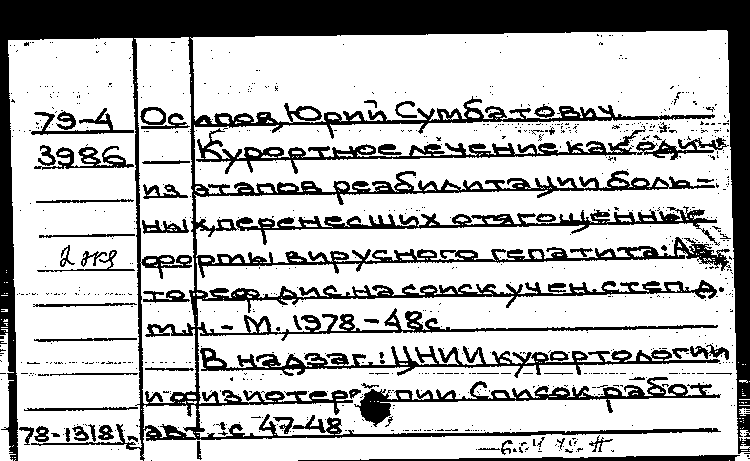 79-4 Осипов, Юрий Сумбатович.
3986 Курортное лечение как один
из этапов реабилитации боль-
ных, перенесших отягощенные
2 экз формы вирусного гепатита: Ав-
тореф. дис. на соиск. учен. степ. д.
м.н. - М., 1978. - 48с.
В надзаг.: ЦНИИ курортологии
и физиотерапии. Список работ
78-13181 авт.: с. 47-48.